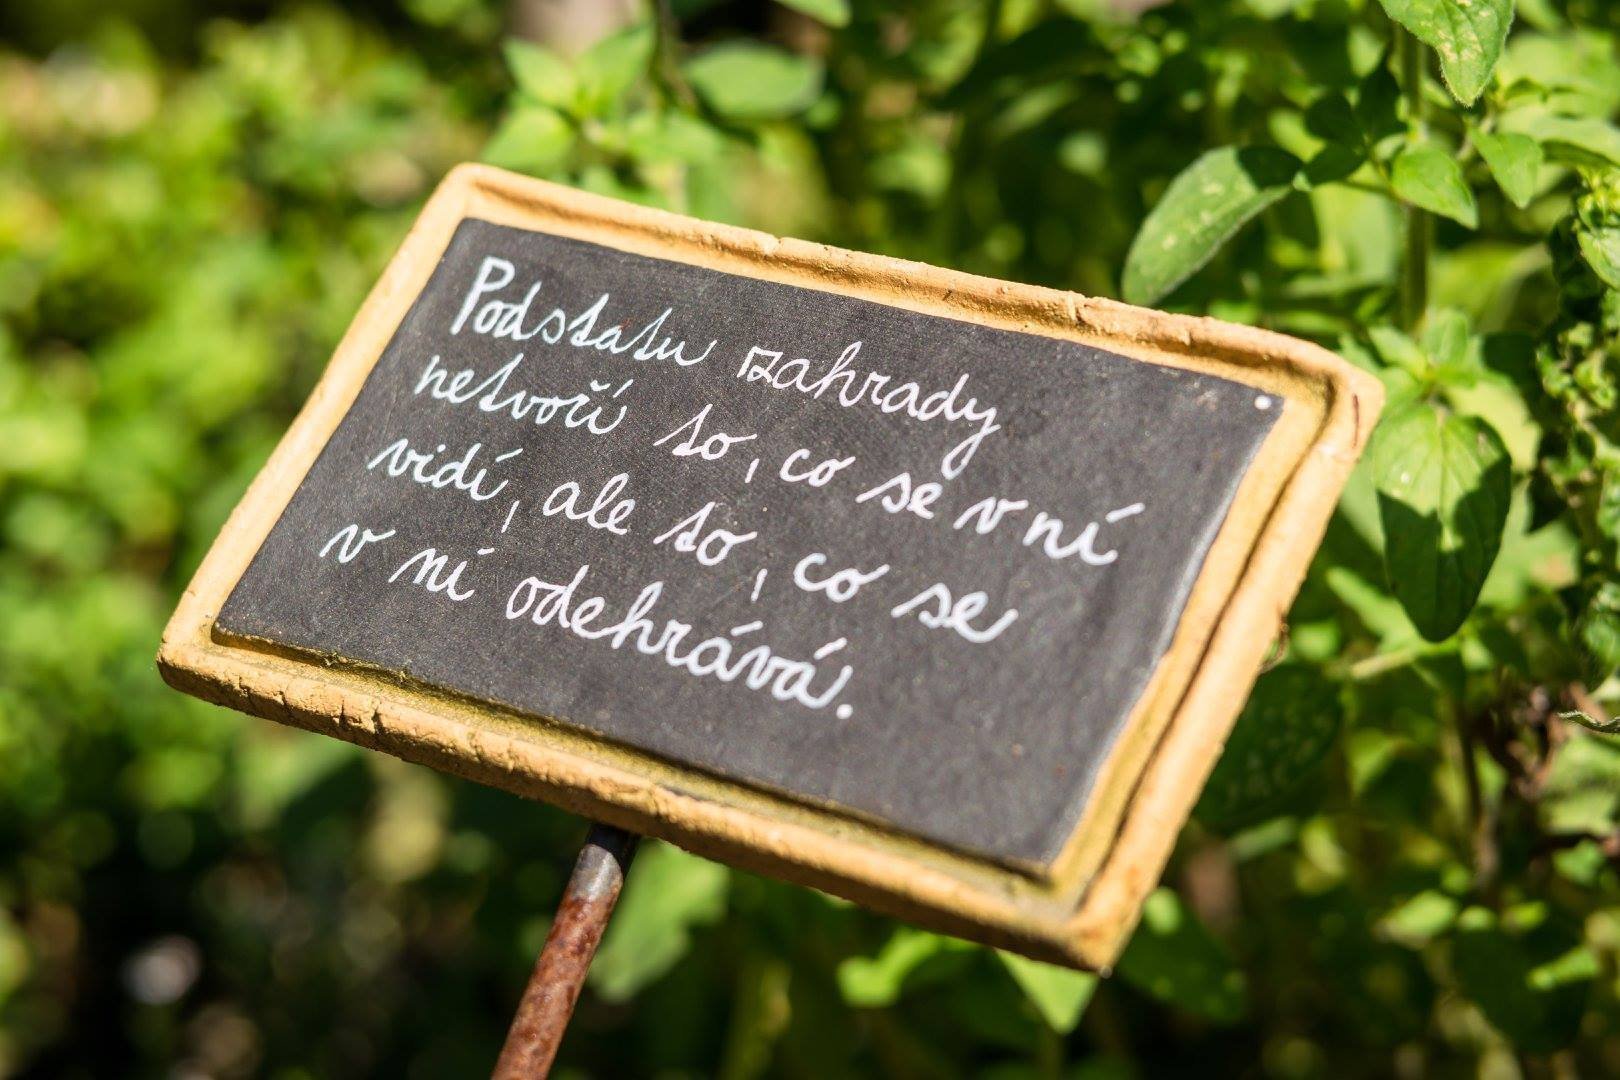 Podstatu zahrady
netvoří to, co se v ní
vidí, ale to, co se
v ní odehrává.